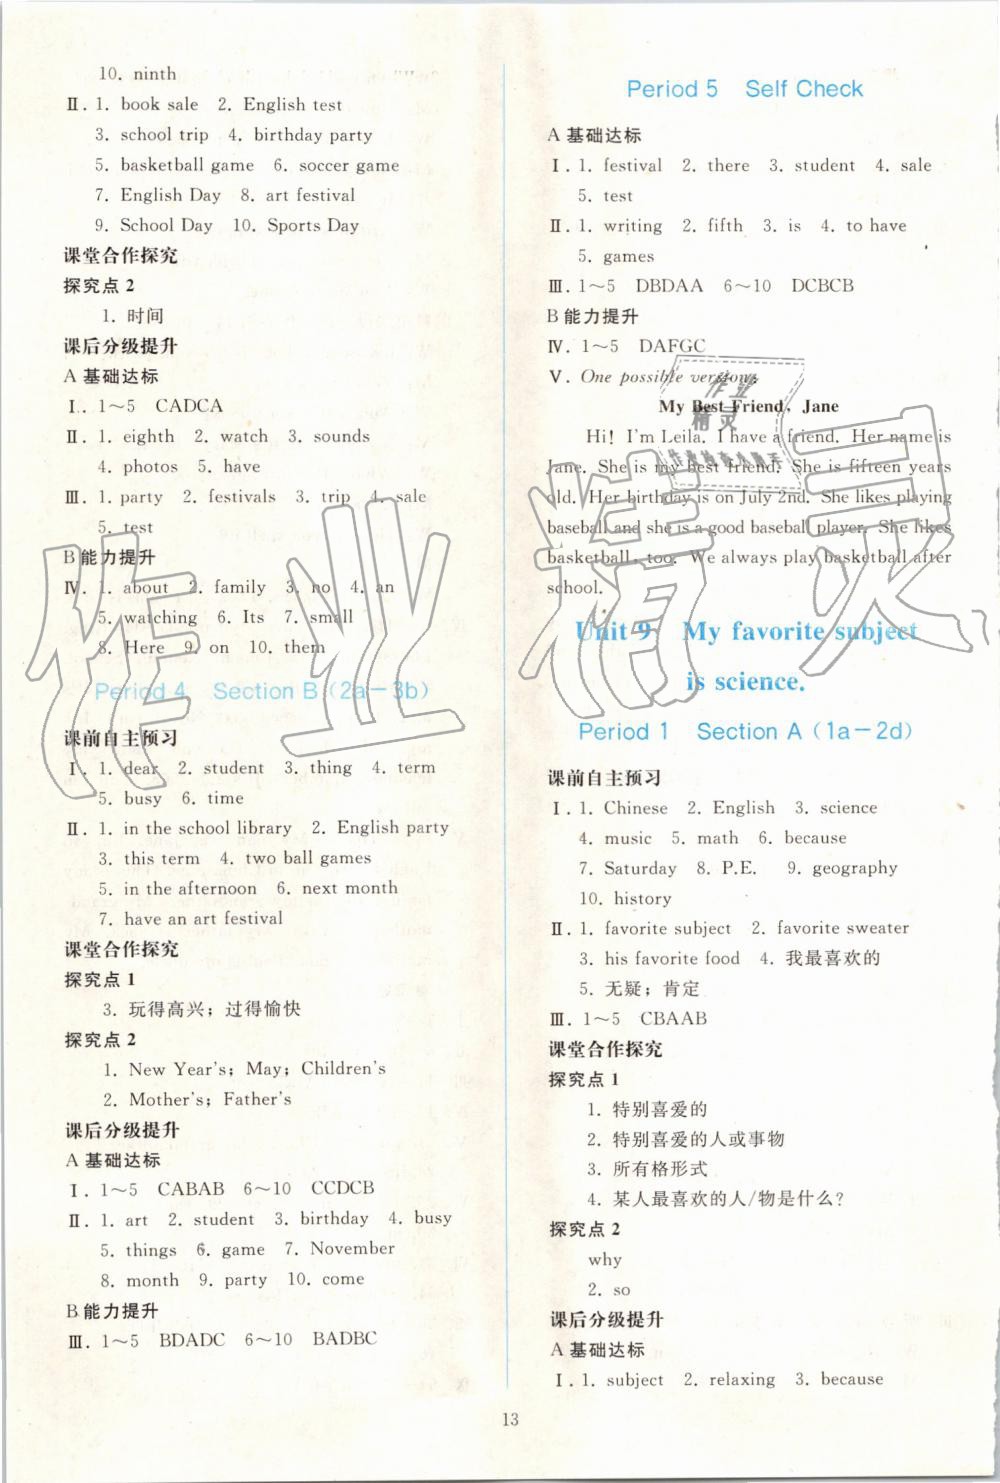 10. ninth
Ⅱ. 1. book sale 2. English test
3. school trip 4. birthday party
5. basketball game 6. soccer game
7. English Day 8. art festival
9. School Day 10. Sports Day
课堂合作探究
探究点 2
1. 时间
课后分级提升
A 基础达标
Ⅰ. 1～5 CADCA
Ⅱ. 1. eighth 2. watch 3. sounds
4. photos 5. have
Ⅲ. 1. party 2. festivals 3. trip 4. sale
5. test
B 能力提升
Ⅳ. 1. about 2. family 3. no 4. an
5. watching 6. Its 7. small
8. Here 9. on 10. them
Period 4 Section B (2a－3b)
课前自主预习
Ⅰ. 1. dear 2. student 3. thing 4. term
5. busy 6. time
Ⅱ. 1. in the school library 2. English party
3. this term 4. two ball games
5. in the afternoon 6. next month
7. have an art festival
课堂合作探究
探究点 1
3. 玩得高兴；过得愉快
探究点 2
1. New Year's; May; Children's
2. Mother's; Father's
课后分级提升
A 基础达标
Ⅰ. 1～5 CABAB 6～10 CCDCB
Ⅱ. 1. art 2. student 3. birthday 4. busy
5. things 6. game 7. November
8. month 9. party 10. come
B 能力提升
Ⅲ. 1～5 BDADC 6～10 BADBC
Period 5 Self Check
A 基础达标
Ⅰ. 1. festival 2. there 3. student 4. sale
5. test
Ⅱ. 1. writing 2. fifth 3. is 4. to have
5. games
Ⅲ. 1～5 DBDAA 6～10 DCBCB
B 能力提升
Ⅳ. 1～5 DAFGC
Ⅴ. One possible version:
My Best Friend, Jane
Hi! I'm Leila. I have a friend. Her name is
Jane. She is my best friend. She is fifteen years
old. Her birthday is on July 2nd. She likes playing
baseball and she is a good baseball player. She likes
basketball, too. We always play basketball after
school.
Unit 9 My favorite subject
is science.
Period 1 Section A (1a－2d)
课前自主预习
Ⅰ. 1. Chinese 2. English 3. science
4. music 5. math 6. because
7. Saturday 8. P.E. 9. geography
10. history
Ⅱ. 1. favorite subject 2. favorite sweater
3. his favorite food 4. 我最喜欢的
5. 无疑；肯定
Ⅲ. 1～5 CBAAB
课堂合作探究
探究点 1
1. 特别喜爱的
2. 特别喜爱的人或事物
3. 所有格形式
4. 某人最喜欢的人/物是什么?
探究点 2
why
2. so
课后分级提升
A 基础达标
Ⅰ. 1. subject 2. relaxing 3. because
13
作业精灵
作业
精灵